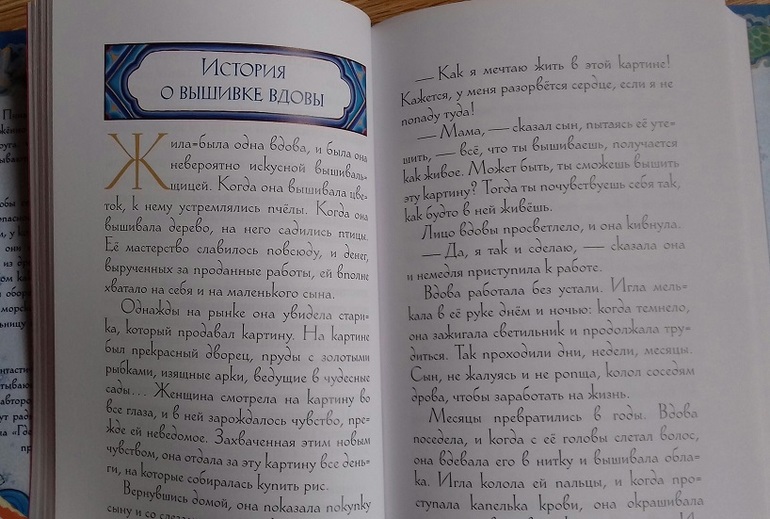 История
о вышивке вдовы
Жила-была одна вдова, и была она
невероятно искусной вышиваль-
щицей. Когда она вышивала цве-
ток, к нему устремлялись пчёлы. Когда она
вышивала дерево, на него садились птицы.
Её мастерство славилось повсюду, и денег,
вырученных за проданные работы, ей вполне
хватало на себя и на маленького сына.
Однажды на рынке она увидела стари-
ка, который продавал картину. На картине
был прекрасный дворец, пруды с золотыми
рыбками, изящные арки, ведущие в чудесные
сады... Женщина смотрела на картину во
все глаза, и в ней зарождалось чувство, пре-
жде ей неведомое. Захваченная этим новым
чувством, она отдала за эту картину все день-
ги, на которые собиралась купить рис.
Вернувшись домой, она показала покупку
сыну и со
— Как я мечтаю жить в этой картине!
Кажется, у меня разорвётся сердце, если я не
попаду туда!
— Мама, — сказал сын, пытаясь её уте-
шить, — всё, что ты вышиваешь, получается
как живое. Может быть, ты сможешь вышить
эту картину? Тогда ты почувствуешь себя так,
как будто в ней живёшь.
Лицо вдовы просветлело, и она кивнула.
— Да, я так и сделаю, — сказала она
и немедля приступила к работе.
Вдова работала без устали. Игла мель-
кала в её руке днём и ночью: когда темнело,
она зажигала светильник и продолжала тру-
диться. Так проходили дни, недели, месяцы.
Сын, не жалуясь и не ропща, колол соседям
дрова, чтобы заработать на жизнь.
Месяцы превратились в годы. Вдова
поседела, и когда с её головы слетал волос,
она вдевала его в нитку и вышивала обла-
ка. Игла колола ей пальцы, и когда про-
ступала капелька крови, она окрашивала